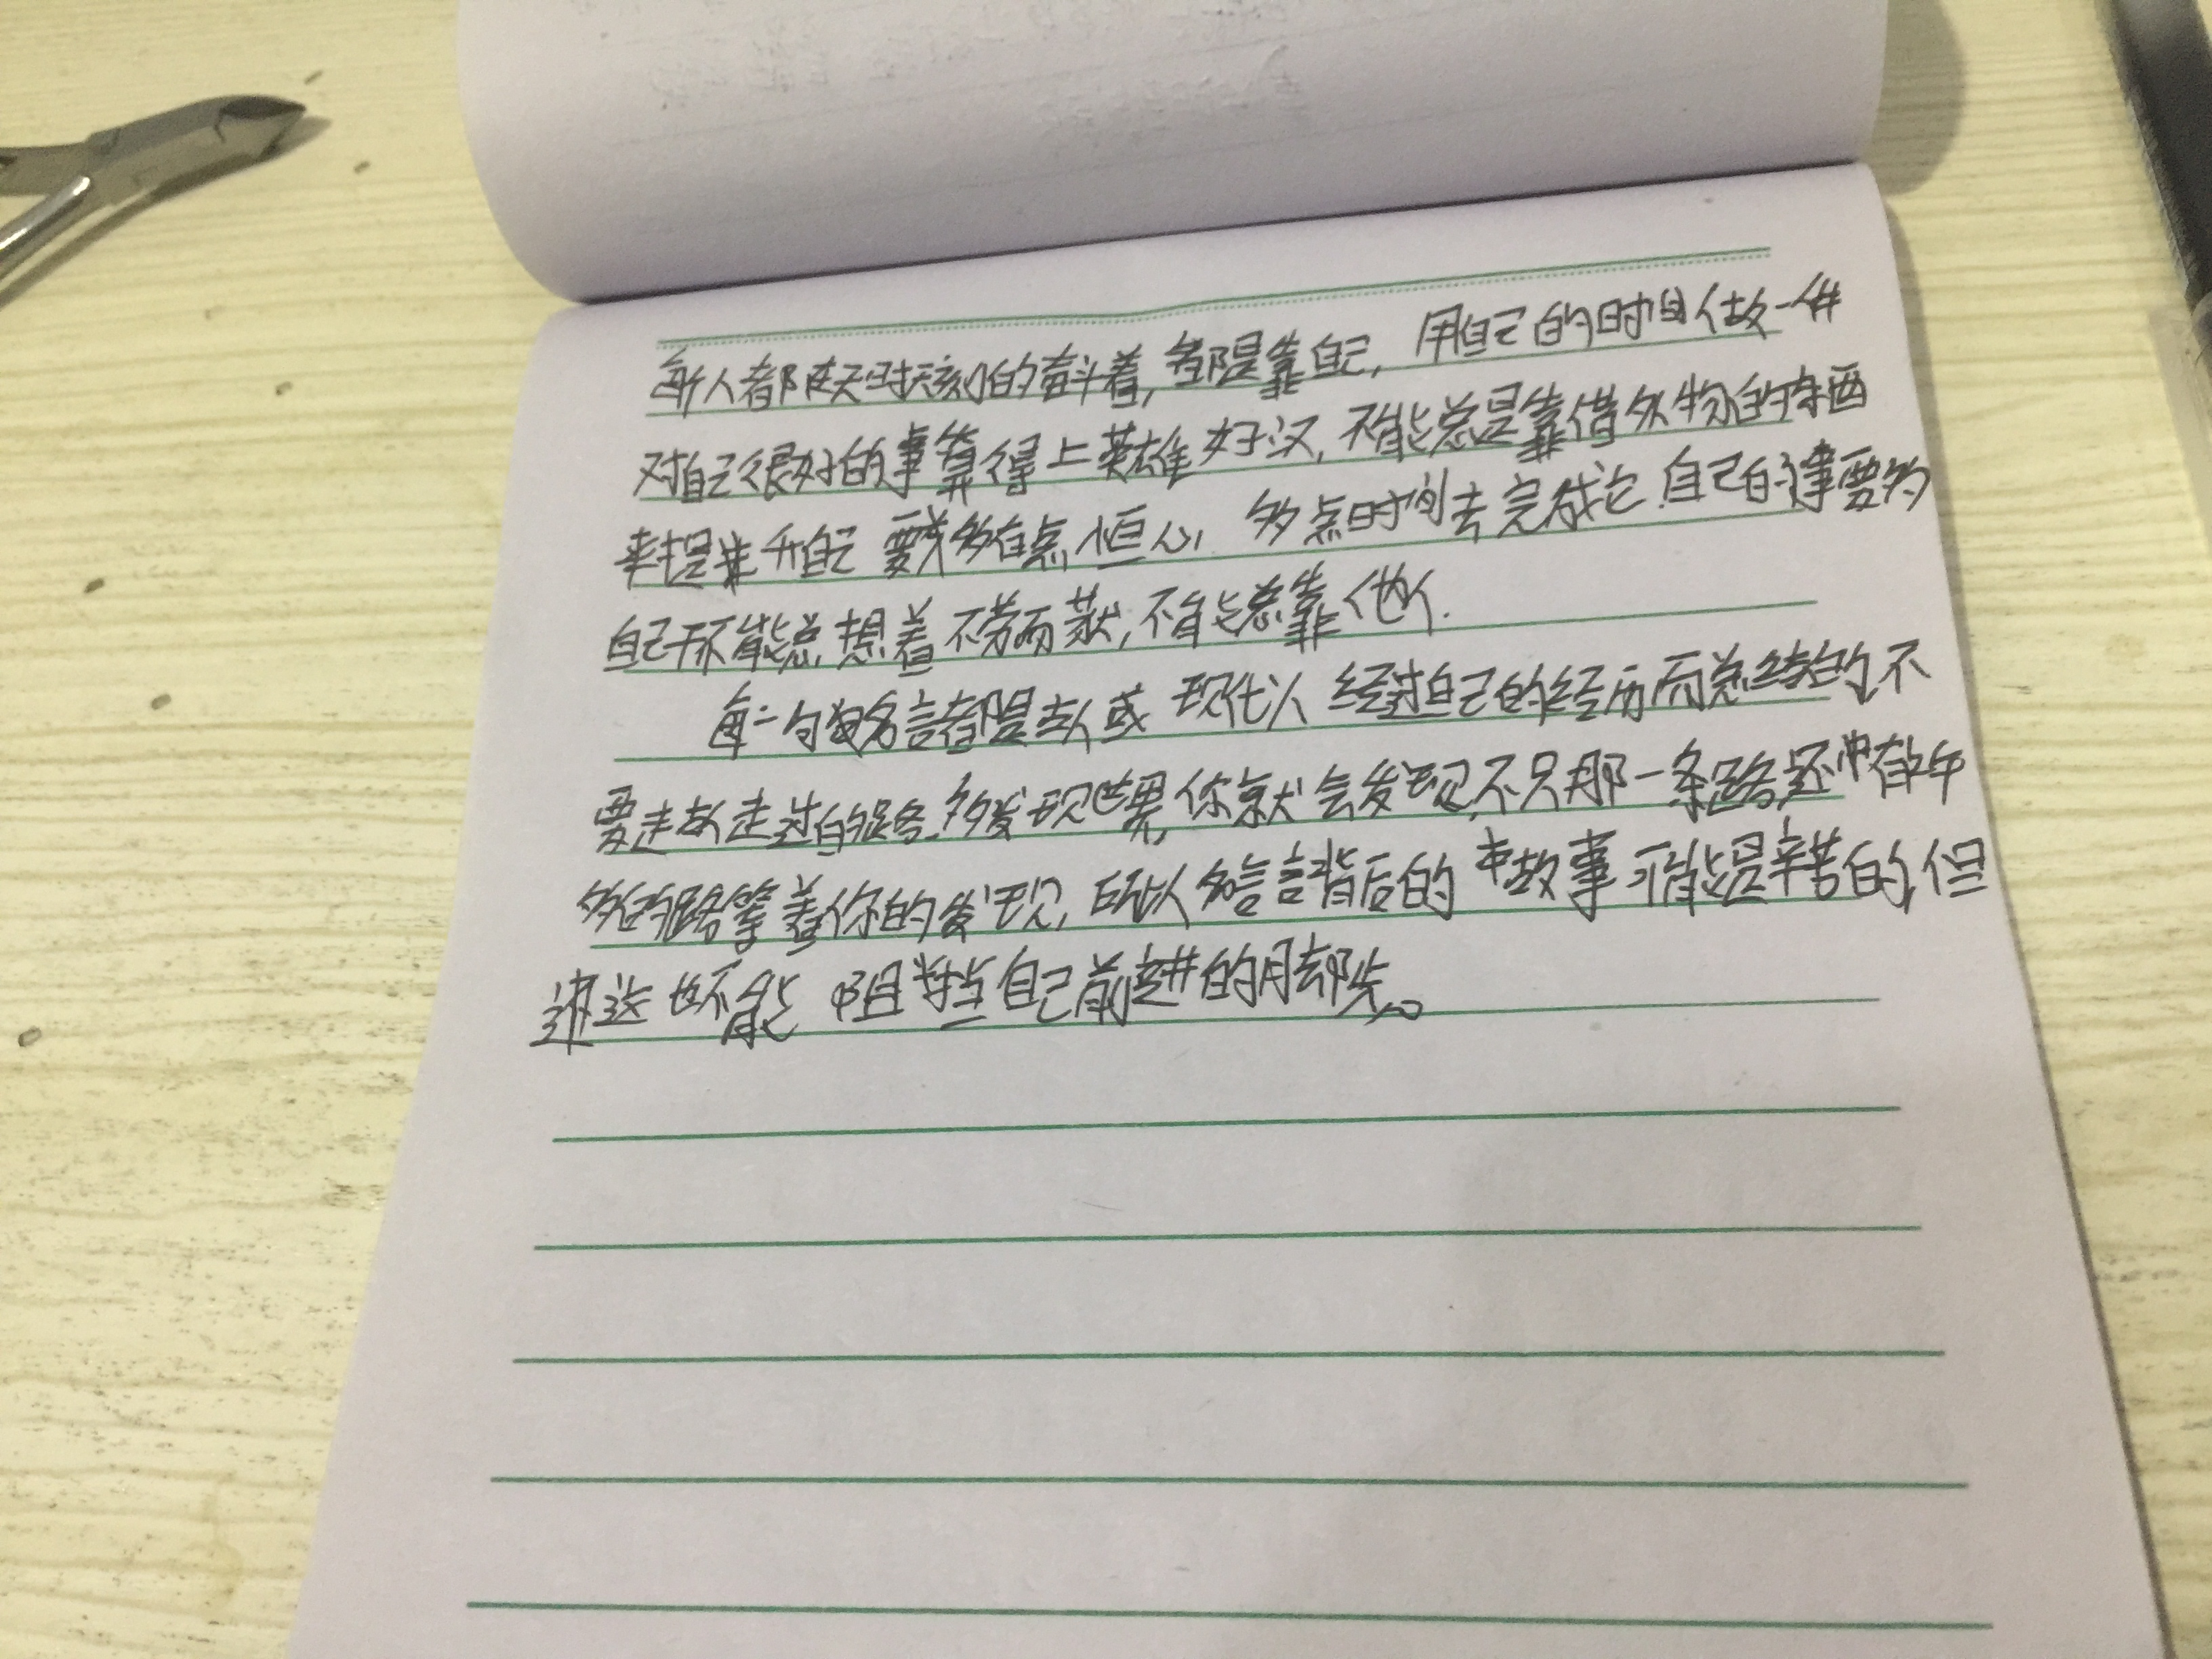 每个人都在无时无刻的奋斗着,都是靠自己,用自己的时间做一件
对自己很好的事算得上英雄好汉,不能总是靠借外物的东西
来提升自己 要多有点恒心,多点时间去完成它.自己的事要为
自己干不能总想着不劳而获,不能总靠他人.
每一句名言都是古人或现代人经过自己的经历而总结的不
要走故走过的路.多发现世界,你就会发现,不只那一条路,还有许
多的路等着你的发现,所以名言背后的故事可能是辛苦的,但
这也不能阻挡自己前进的脚步。